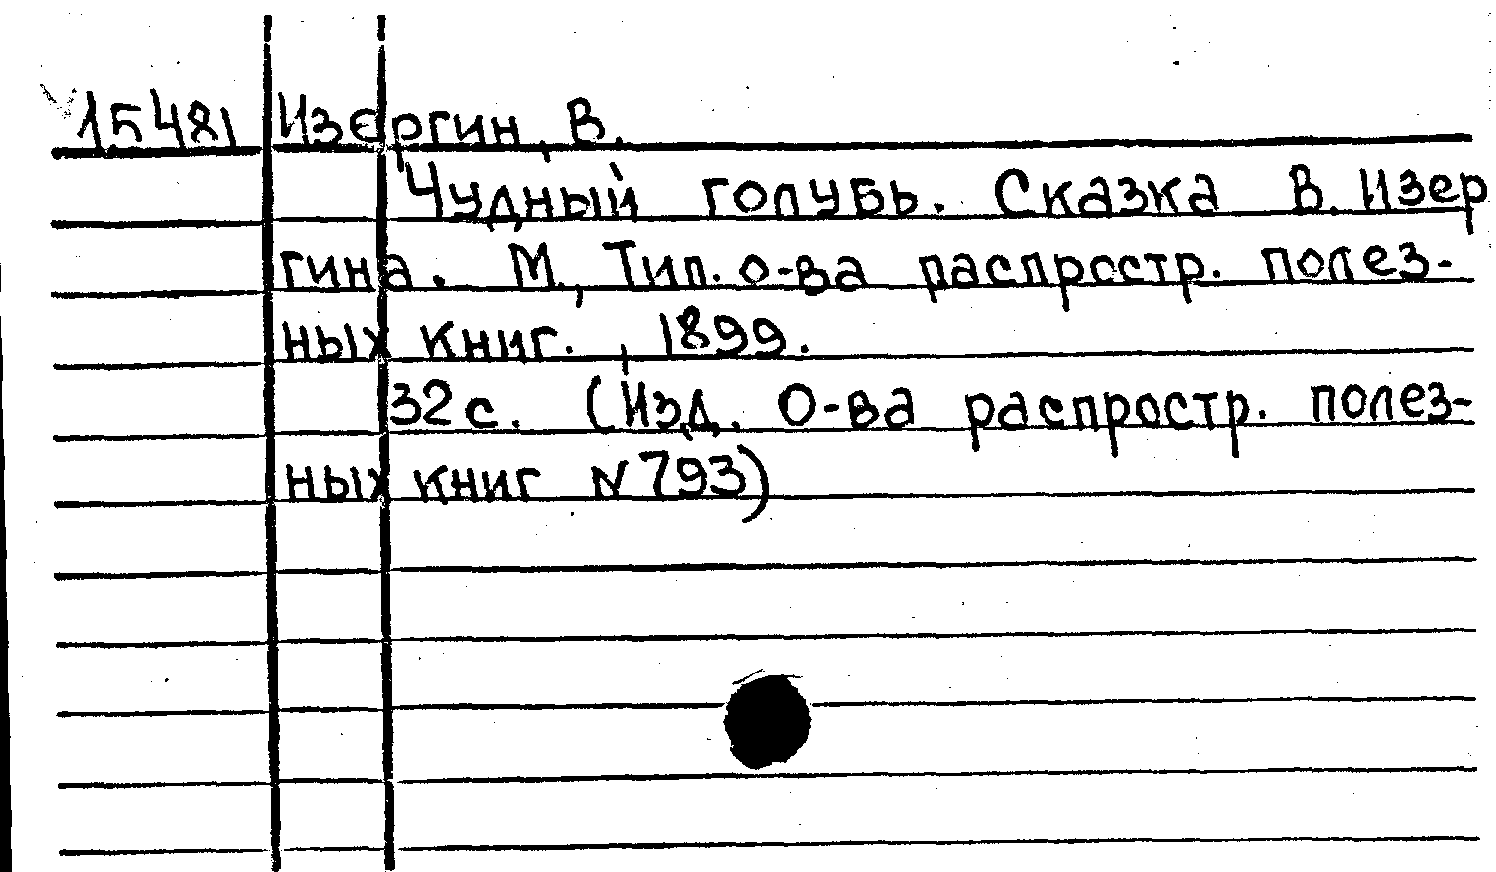 15481 Изергин, В.
Чудный голубь. Сказка В. Изер
гина. М., Тип. о-ва распростр. полез-
ных книг., 1899.
32 с. (Изд. О-ва распростр. полез-
ных книг N 793)